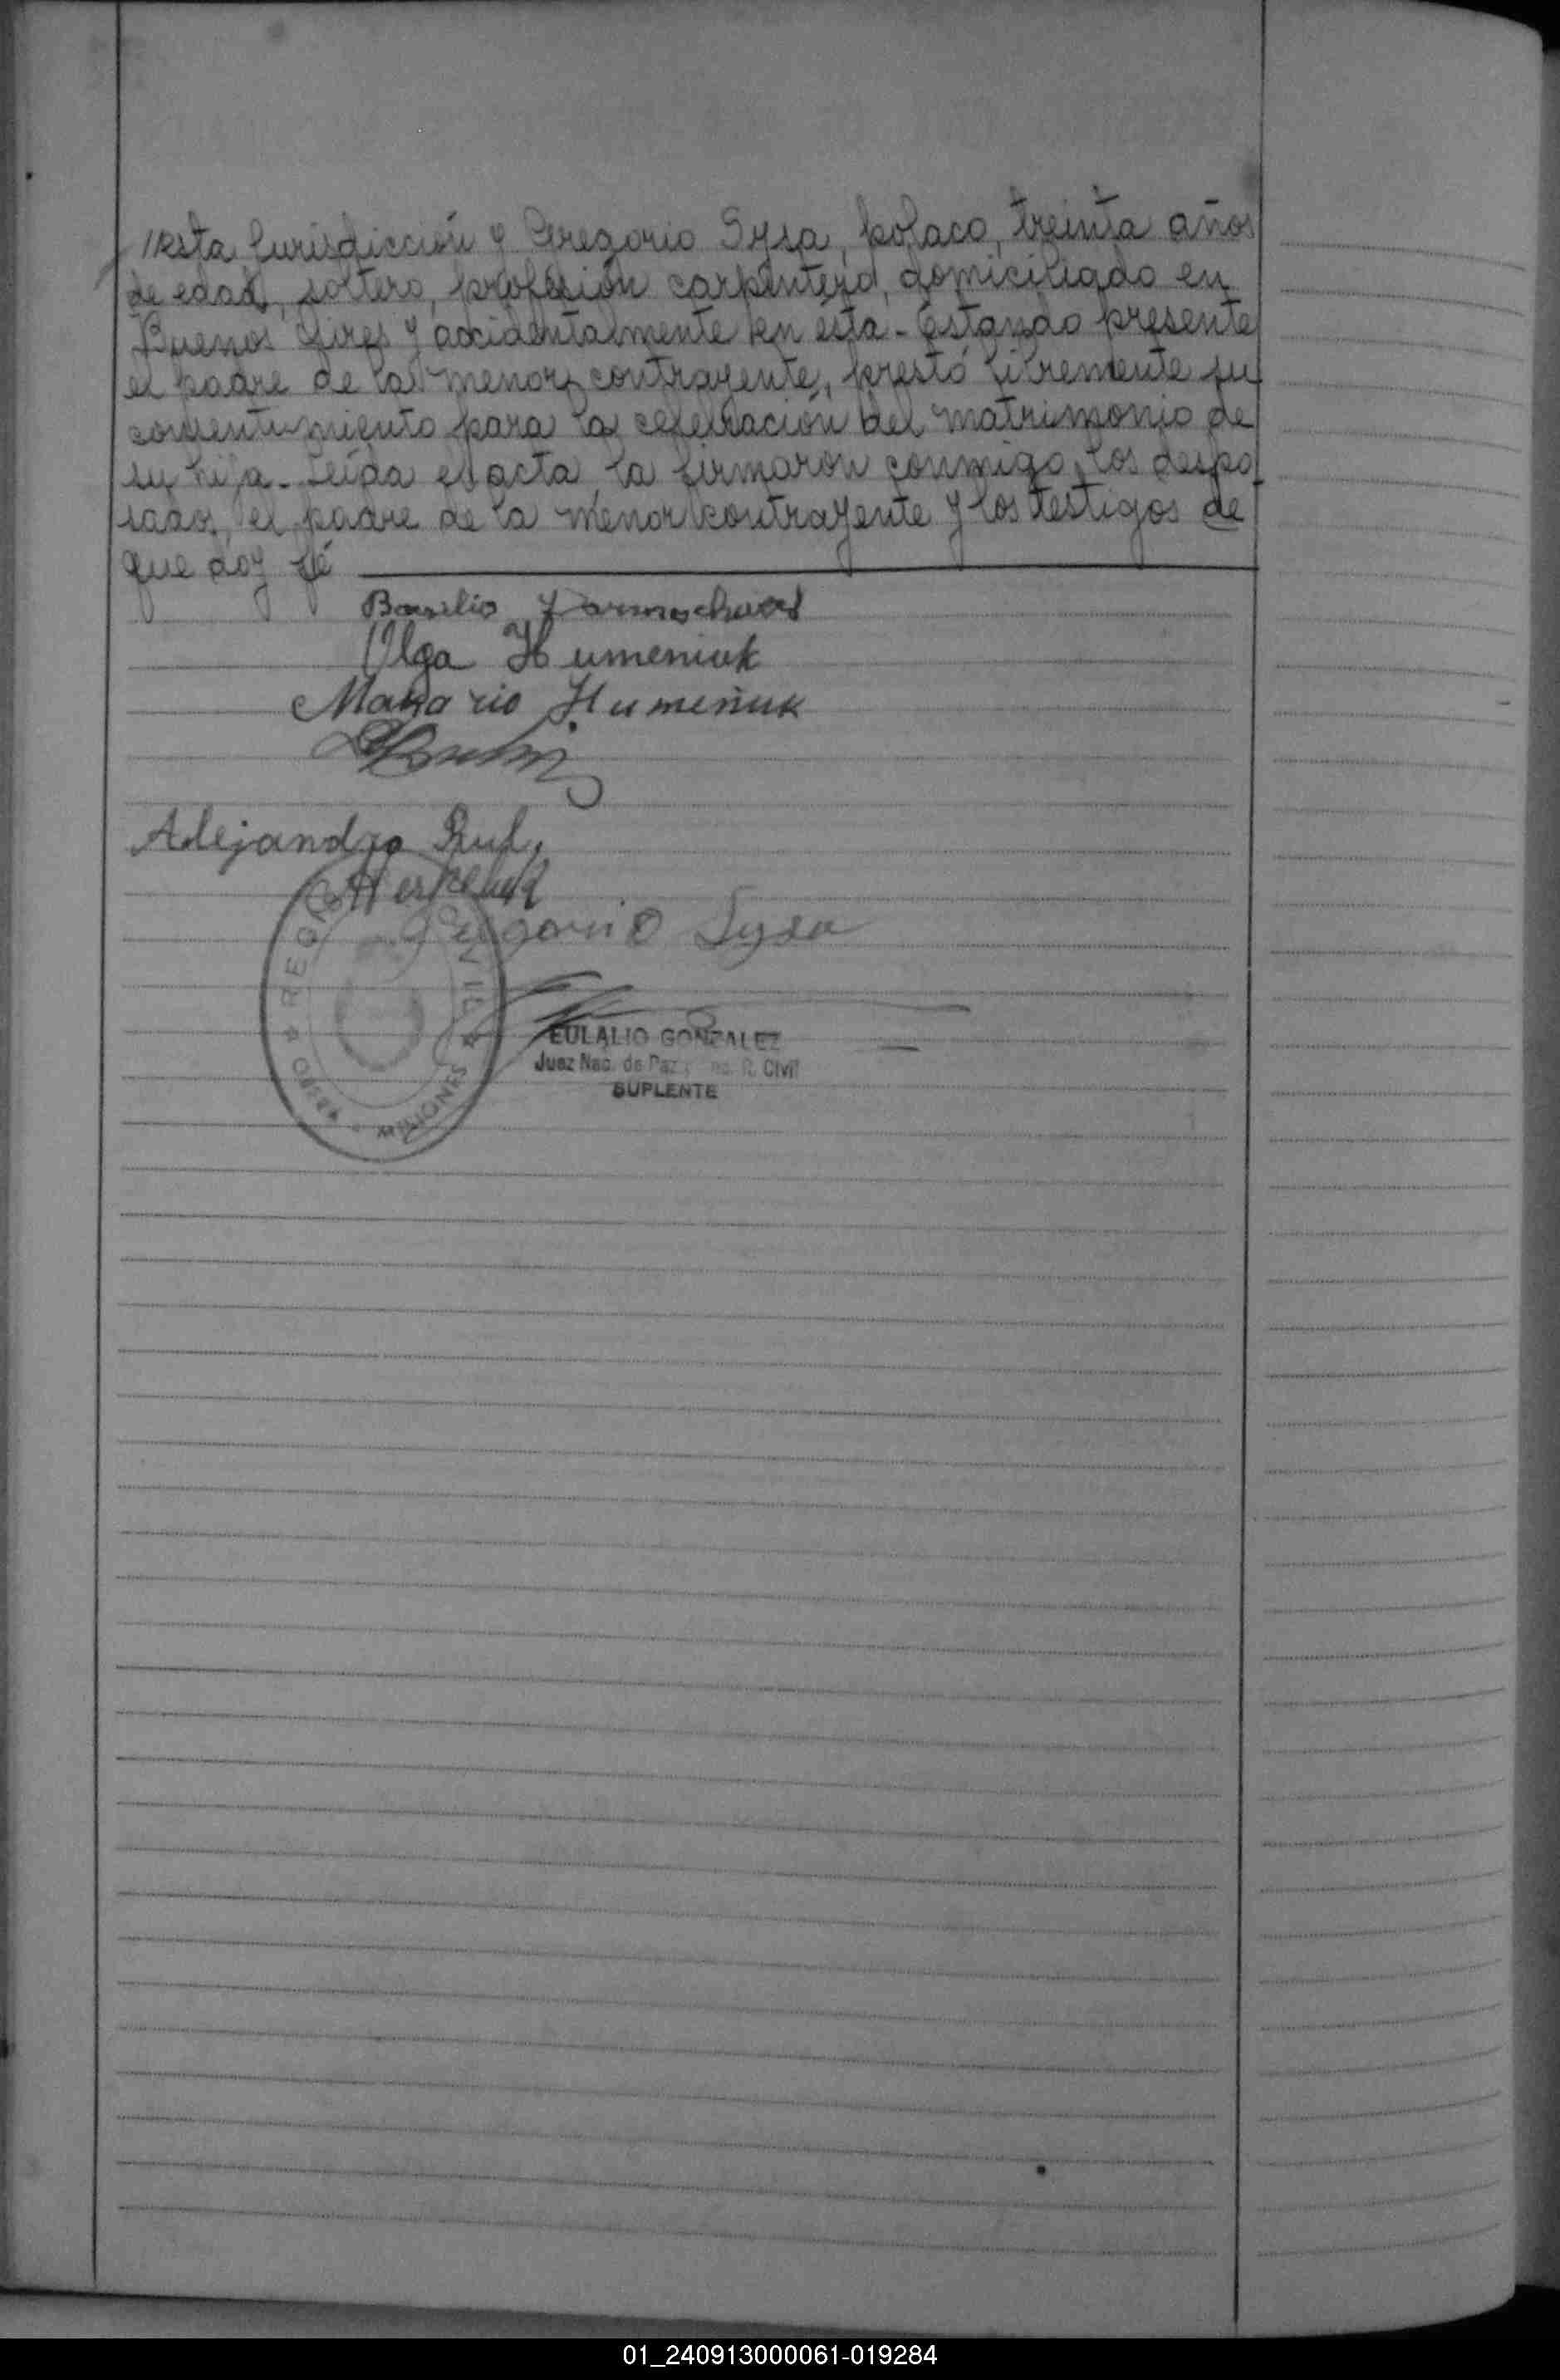 //esta Jurisdicción y Gregorio Sysa, polaco, treinta años
de edad, soltero, profesión carpintero, domiciliado en
Buenos Aires y accidentalmente en ésta.- Estando presente
el padre de la menor contrayente, prestó libremente su
consentimiento para la celebración del matrimonio de
su hija.- Leída el acta, la firmaron conmigo, los despo
sados, el padre de la menor contrayente y los testigos de
que doy fé
Basilio
Olga Humeniuk
Makario Humeniuk
Alejandro
Gregorio Sysa
REGISTRO CIVIL
OBERA MISIONES
EULALIO GONZALEZ
Juez Nac. de Paz R. Civil
SUPLENTE
01_240913000061-019284